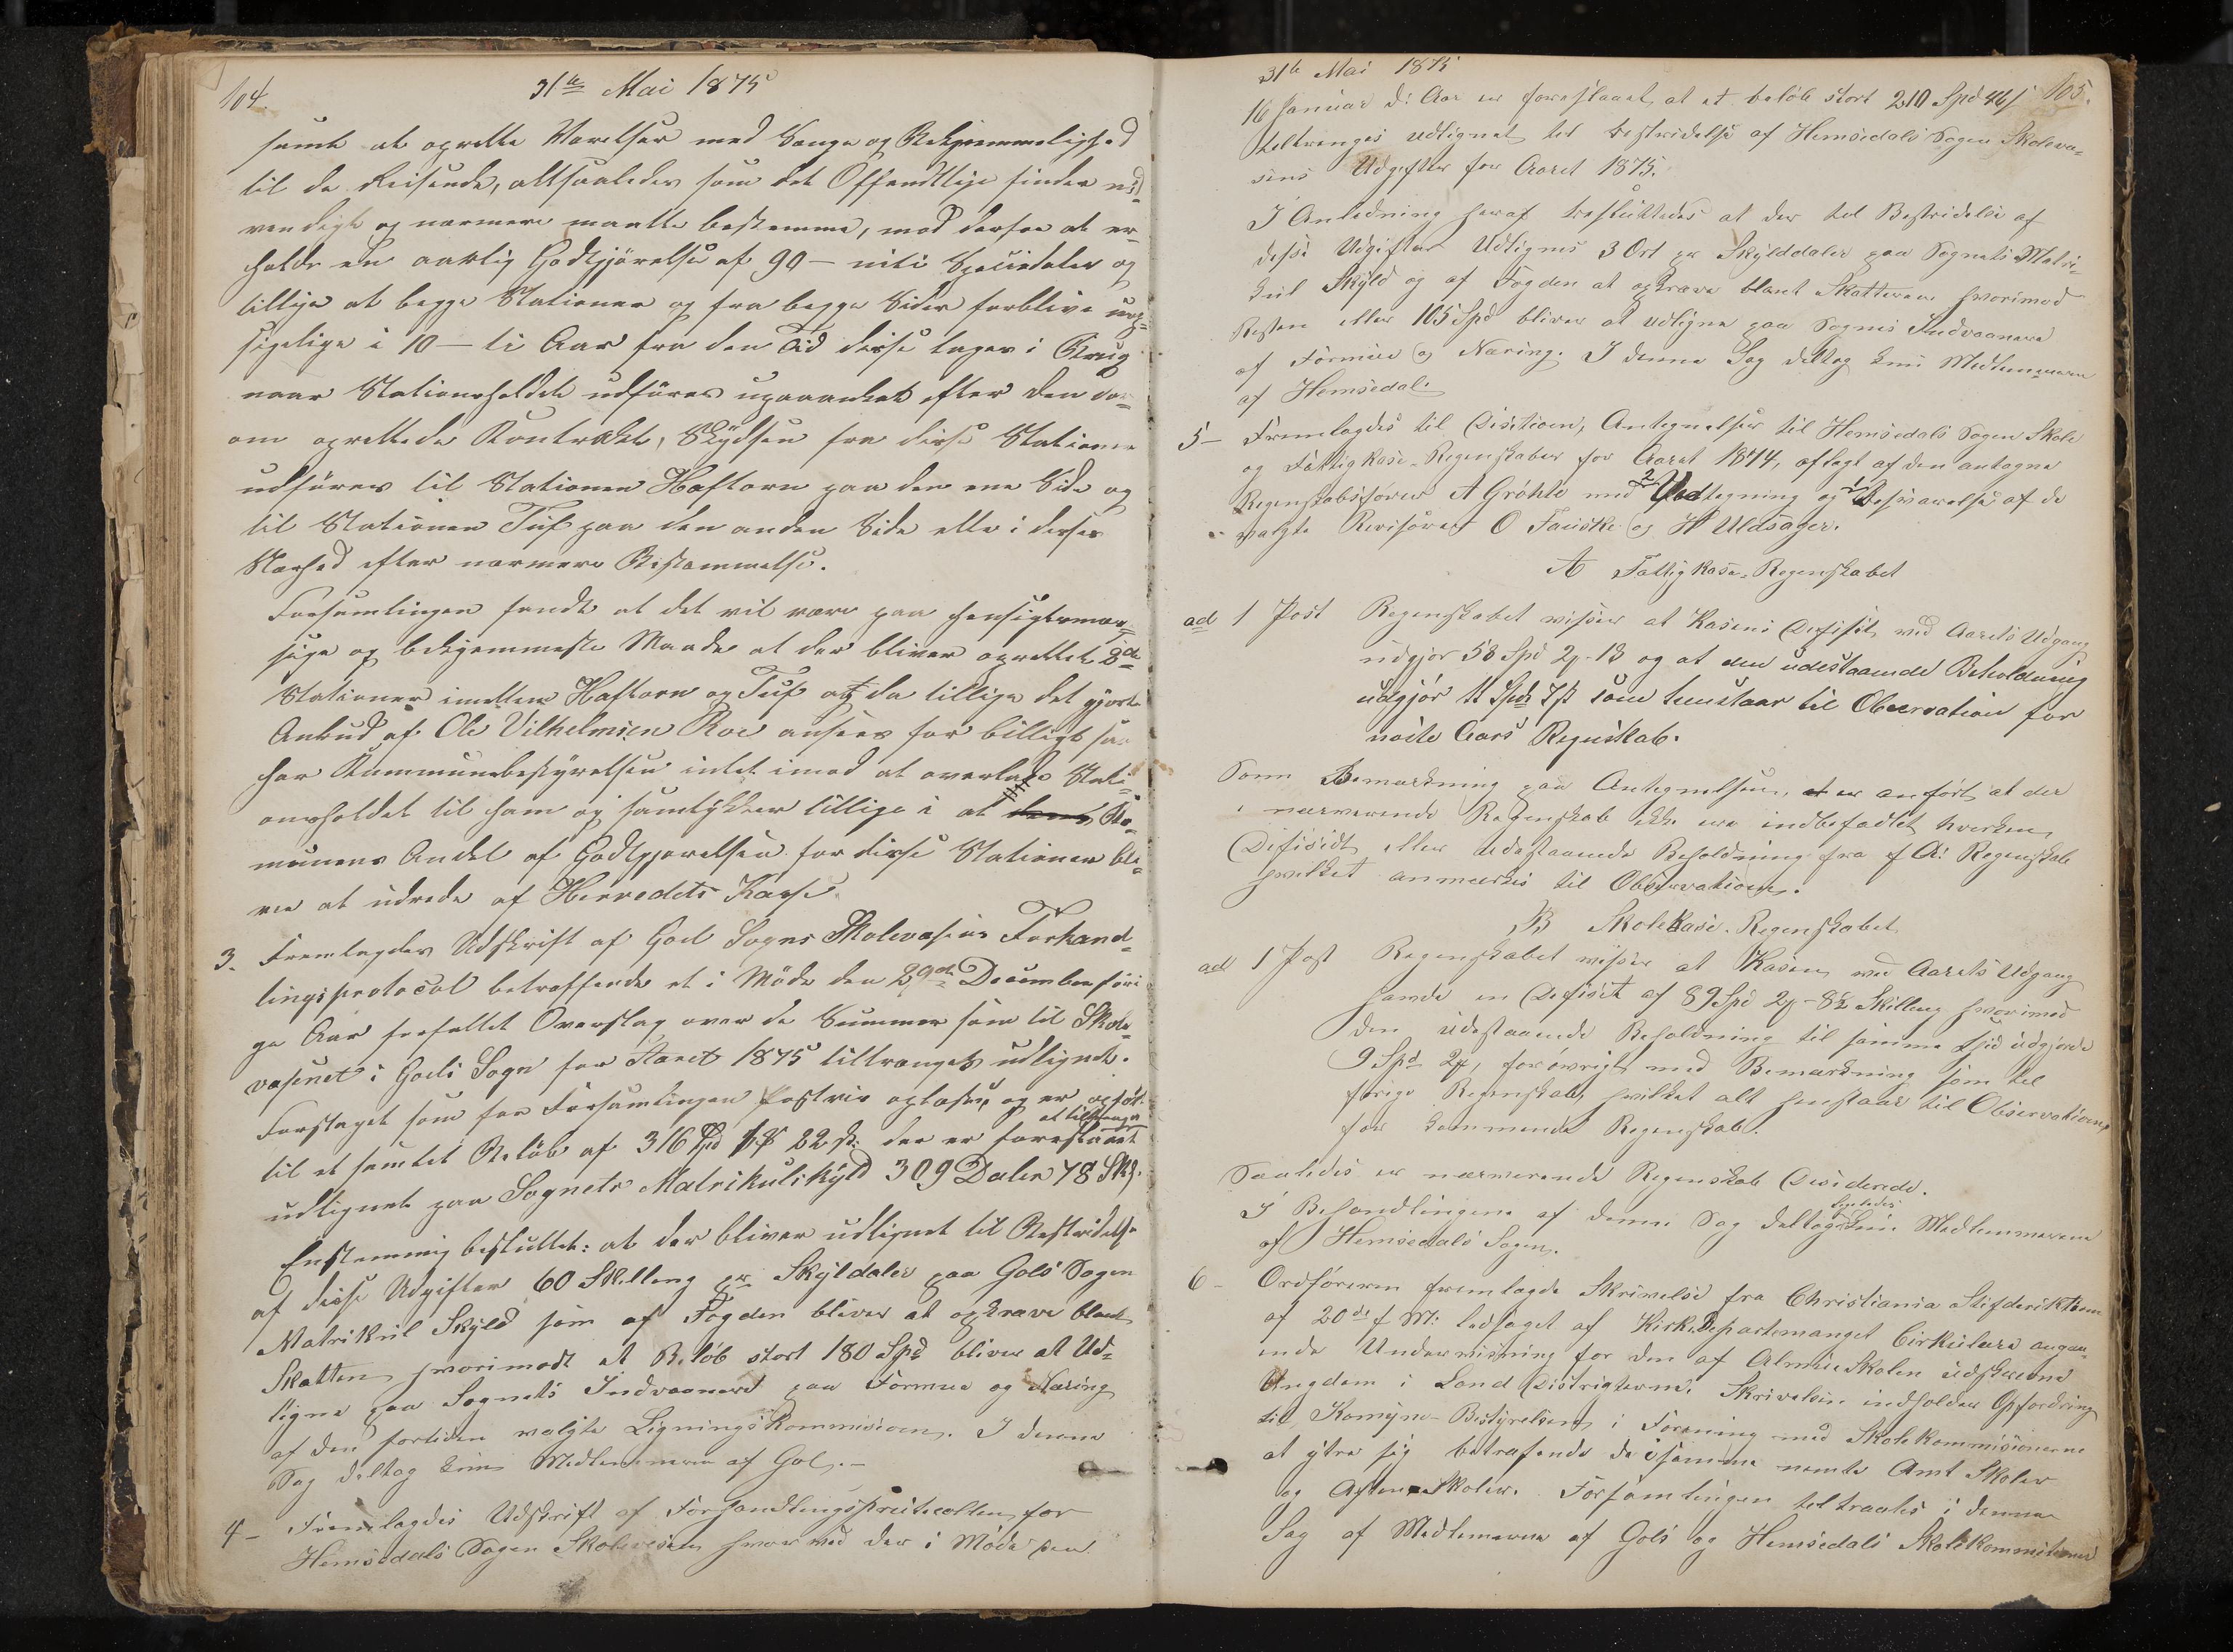 104.
31te Mai 1875
samt at oprette Værelser med Senge og Bekvemmelighed
til de Reisende, altsaaledes som det Offentlige finder nød-
vendigt og nærmere maatte bestemme, mod derfor at er-
holde en aarlig Godtgjörelse af 90 – niti Speciedaler og
tillige at begge Stationer og fra begge Sider forblive uop-
sigelige i 10 – ti Aar fra den Tid disse tages i Brug
naar Stationsholdet udföres upaaanket efter den der-
om oprettede Kontrakt, Skydsen fra disse Stationer
udföres til Stationen Haftorn paa den ene Side og
til Stationen Tuf paa den anden Side eller i disses
Nærhed efter nærmere Bestemmelse.
Forsamlingen fandt at det vil være paa hensigtsmæs-
sige og bekvemmeste Maade at der bliver oprettet 2de
Stationer imellem Haftorn og Tuf og da tillige det gjorte
Anbud af Ole Vilhelmsen Roe ansees for billigt saa
har Kommunebestyrelsen intet imod at overlade Stati-
onsholdet til ham og samtykker tillige i at Ko-
munens Andel af Godtgjörelsen for disse Stationer bli-
ver at udrede af Herredets Kasse.
3. Fremlagdes Udskrift af Goel Sogns Skolevæsens Forhand-
lingsprotocol betræffende et i Möde den 29de December fori-
ge Aar forfattet Overslag over de Summer som til Skole-
væsenet i Goels Sogn for Aaret 1875 tiltrænges udlignet.
Forslaget som for Forsamlingen Postvis oplæses, og er opfört
at tiltrænges
til et samlet Belöb af 316 Spd 22 sk. der er foreslaaet
udlignet paa Sognets Matrikulskyld 309 Daler 78 Sk.
Enstemmig besluttet: at der bliver udlignet til Bestridelse
af disse Udgifter 60 Skilling pr Skylddaler paa Gols Sogn
Matrikul Skyld som af Fogden bliver at opkræve blant
Skatten hvorimodt et Belöb stort 180 Spd bliver at Ud-
ligne paa Sognets Indvaanere paa Formue og Næring
af den fortiden valgte Ligningskommission. I denne
Sag deltog kun Medlemmerne af Gol. –
4 – Fremlagdes Udskrift af Forhandlingsprotocollen for
Hemsedals Sogen Skolevesen hvorved der i Möde den
31te Mai 1875
105.
16 Januar d: Aar er foreslaaet at et belöb stort 210 Spd 46 s
tiltrænges udlignet til bestridelse af Hemsedals Sogen Skolevæ-
sens Udgifter for Aaret 1875.
I Anledning heraf besluttedes at der til Bestridelse af
disse Udgifter Udlignes 3 Ort pr Skylddaler paa Sognets Matri-
kul Skyld og af Fogden at opkræve blant Skatterne hvorimod
Resten eller 105 Spd bliver at udligne paa Sognets Indvaanere
af Formue og Næring. I denne Sag deltog kun Medlemmerne
af Hemsedal.
5 – Fremlagdes til Disition, Antegnelser til Hemsedals Sogen Skole
og Fattigkase-Regenskaber for Aaret 1874, aflagt af den antagne
Regenskabsförer A Gröhte med 2 Vedtegning og 1 Besvarelse af de
valgte Revisorer O Fauske og H Uldsager.
A Fattigkase-Regenskabet
ad 1 Post Regenskabet visser at Kasens Defisit ved Aarets Udgang
udgjör 58 Spd 2 – 13 og at den udestaaende Beholdning
udgjör 11 Spd som henstaar til Observation for
næste Aars Reguskab.
Som Bemærkning paa Antegnelsen, er anfört at der
i nærværende Regenskab ikke ere indbefattet hverken
Difisidt eller udestaaende Beholdning fra f A: Regenskab
hvilket anmærkes til Observation.
B Skolekase-Regenskabet
ad 1 Post Regenskabet visser at Kasen ved Aarets Udgang
havde en Defisit af 89 Spd 2 – 8½ Skilling hvorimod
den udestaaende Beholdning til samme Tid udgjorde
9 Spd 2, forövrigt med Bemærkning som til
forige Regenskab, hvilket alt henstaar til Observation
for kommende Regenskab.
Saaledes er nærværende Regenskab Desiderede.
I Behandlingen af denne Sag deltog ligeledes kun Medlemmerne
af Hemsedals Sogen.
6 – Ordföreren fremlagde Skrivelse fra Christiania Stifdirektion
af 20de f M: ledsaget af Kirkedepartemanget Cirkulære angaa-
ende Undervisning for den af Almueskolen udskrevne
Ungdom i Land Distrigterne. Skrivelsen indholder Opfordring
til Komune-Bestyrelsen i Forening med Skolekommisionerne
at ytre sig betræfende de i samme nevnte Amt Skoler
og Aften Skoler. Forsamlingen tiltraates i denne
Sag af Medlemerne af Gols og Hemsedals Skolekommisioner